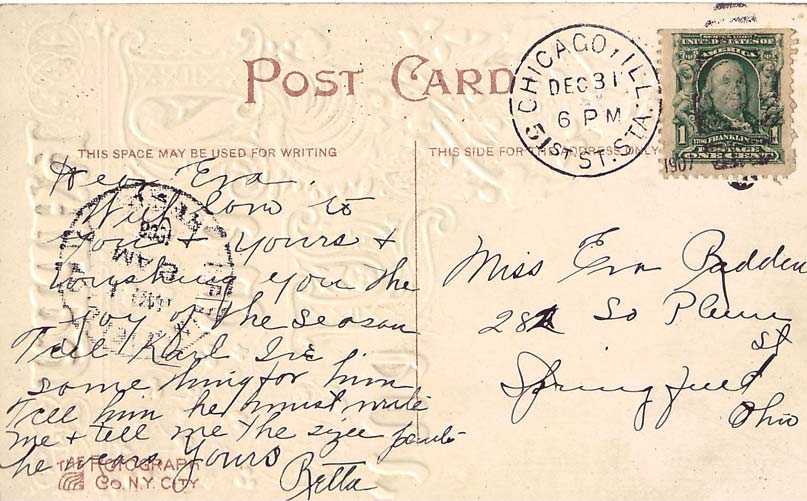 POST CARD
CHICAGO, ILL.
DEC 31
6 PM
51ST ST. STA.
UNITED STATES OF AMERICA
1 1
FRANKLIN
POSTAGE
ONE CENT
1907
THIS SPACE MAY BE USED FOR WRITING
THIS SIDE FOR THE ADDRESS ONLY
Dear Eva.
With love to
you & yours &
wishing you the
joy of the season
Tell Karl I've
some thing for him
Tell him he must write
me & tell me the size pants
he wears Yours
Retta
Miss Eva Badden
282 So Plum
st
Springfield
Ohio
AM
THE ROTOGRAPH
Co. N.Y. CITY